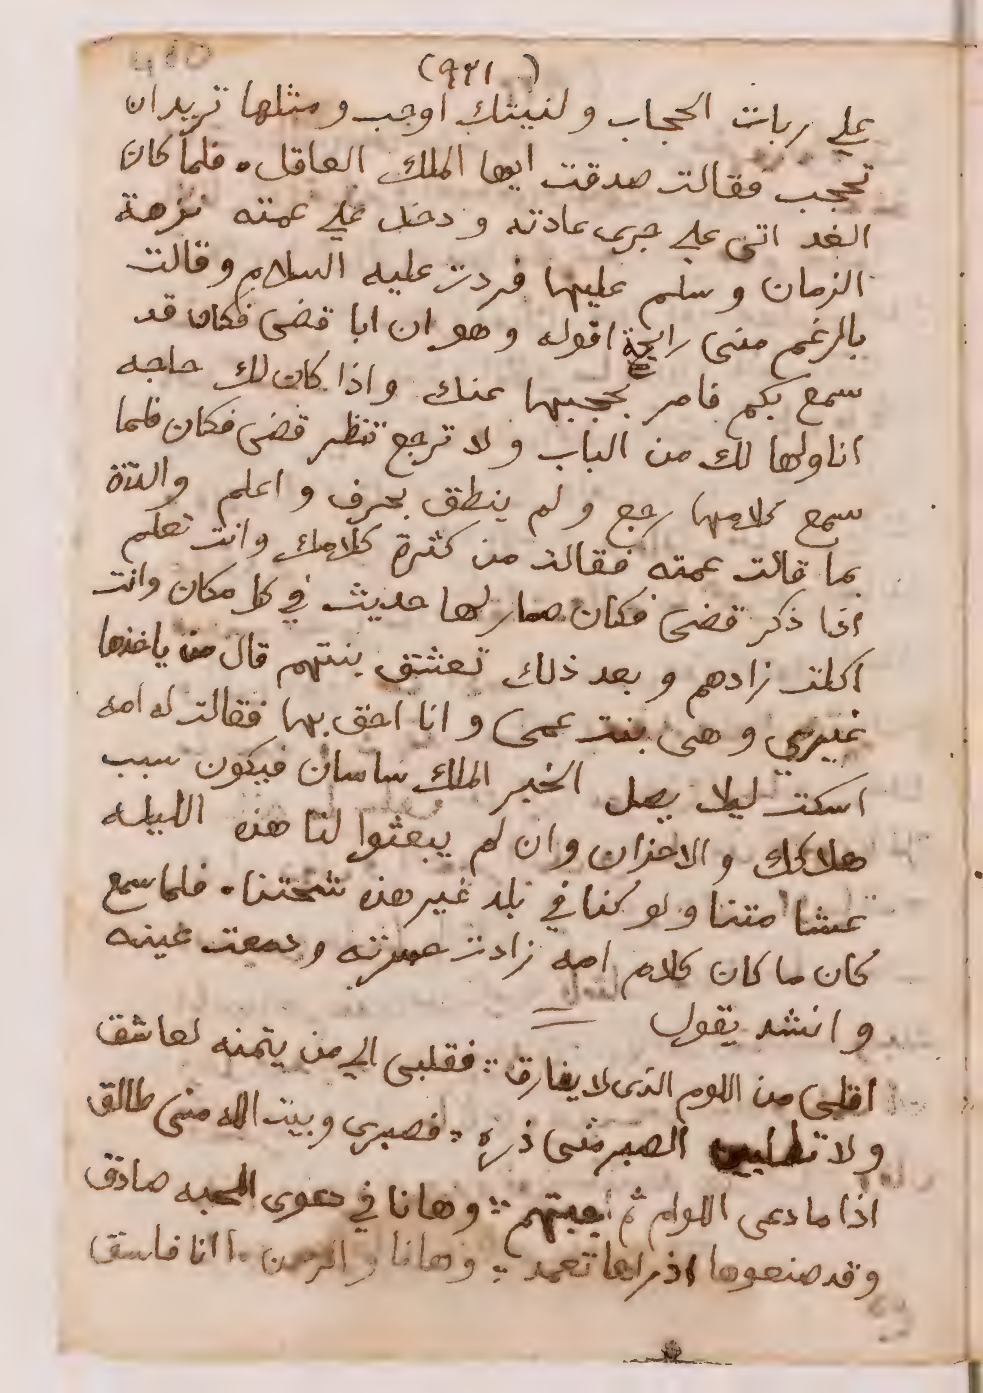 (٩٢١)
علي ربات الحجاب ولنيتك اوجب ومثلها تريد ان
تحجب فقالت صدقت ايها الملك العاقل . فلما كان
الغد اتى علي جرى عادته ودخل علي عمته نزهة
الزمان وسلم عليها فردت عليه السلام وقالت
بالرغم منى اقوله وهو ان ابا قضى فكان قد
سمع بكم فامر بحجبها عنك واذا كان لك حاجه
اناولها لك من الباب ولا ترجع تنظر قضى فكان فلما
سمع كلامها رجع ولم ينطق بحرف واعلم والدته
بما قالت عمته فقالت من كثرة كلامك وانت تعلم
اذا ذكر قضى فكان صار لها حديث في كل مكان وانت
اكلت زادهم وبعد ذلك تعشق بنتهم قال من ياخذها
غيري وهى بنت عمى وانا احق بها فقالت له امه
اسكت ليلا يصل الخبر الملك ساسان فيكون سبب
هلاكك والاحزان وان لم يبعثوا لنا هذه الليله
عشا متنا ولو كنا في بلد غير هذه شحتنا . فلما سمع
كان ما كان كلام امه زادت حسرته ودمعت عينه
وانشد يقول
اقلى من اللوم الذى لا يفارق : فقلبى الي من يتمنه لعاشق
ولا تطلبين الصبر منى ذره : فصبرى وبيت الله منى طالق
اذا ما دعى اللوام ثم : وهانا في دعوى المحبه صادق
وقد صنعوها تعمد : وهانا والرحمن ما انا فاسق